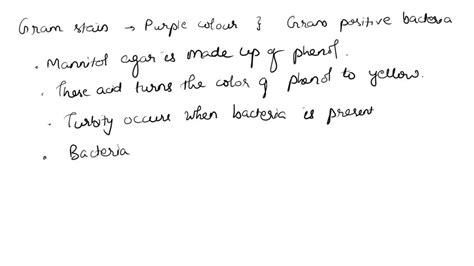 Gram stain → Purple colour } Gram positive bacteria
• Mannitol agar is made up of phenol.
• These acid turns the color of phenol to yellow.
• Turbity occurs when bacteria is present
• Bacteria